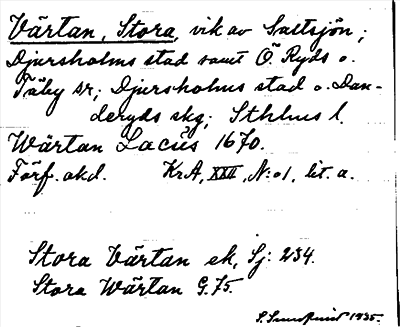 Värtan, Stora, vik av Saltsjön;
Djursholms stad samt Ö. Ryds o.
Täby sr; Djursholms stad o. Dan-
deryds skg; Sthlms l.
Wärtan Lacus 1670.
Förf. akd. KrA, XXII, N:o1, lit. a.
Stora Värtan ek, Sj: 234.
Stora Wärtan G.75.
S. Sundquist 1935.